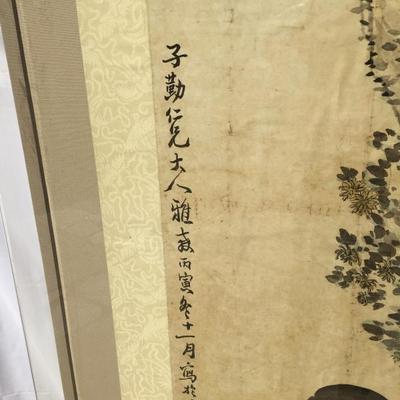 子勤仁兄大人雅教丙寅冬十一月寫於